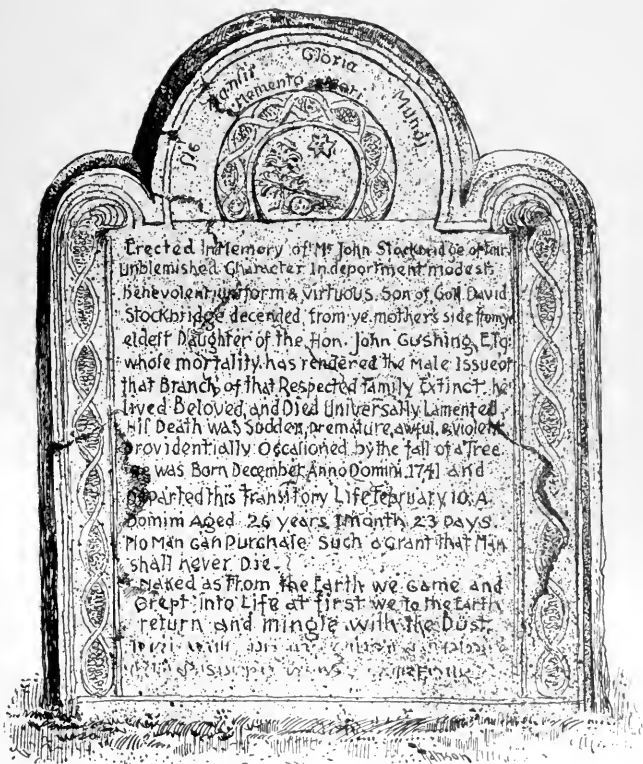 Sic Transit Gloria Mundi
Memento Mori
Erected In Memory of Mr John Stockbridge of
Unblemished Character In deportment modest
Benevolent uniform & virtuous. Son of Coll David
Stockbridge decended from ye mothers side from ye
eldest Daughter of the Hon. John Cushing Esq
whose mortality has rendered the Male Issue of
that Branch of that Respected family Extinct he
lived Beloved, and Died Universally Lamented,
His Death was Sudden, premature, awful, & violent
providentially Occasioned by the fall of a Tree.
He was Born December, Anno Domini, 1741 and
Departed this Transitory Life February 10, A
Domini Aged 26 years 1 month 23 Days
No Man Can Purchase Such a Grant that Man
shall never Die.
Naked as from the Earth we Came and
Crept into Life at first we to the Earth
return and mingle with the Dust.